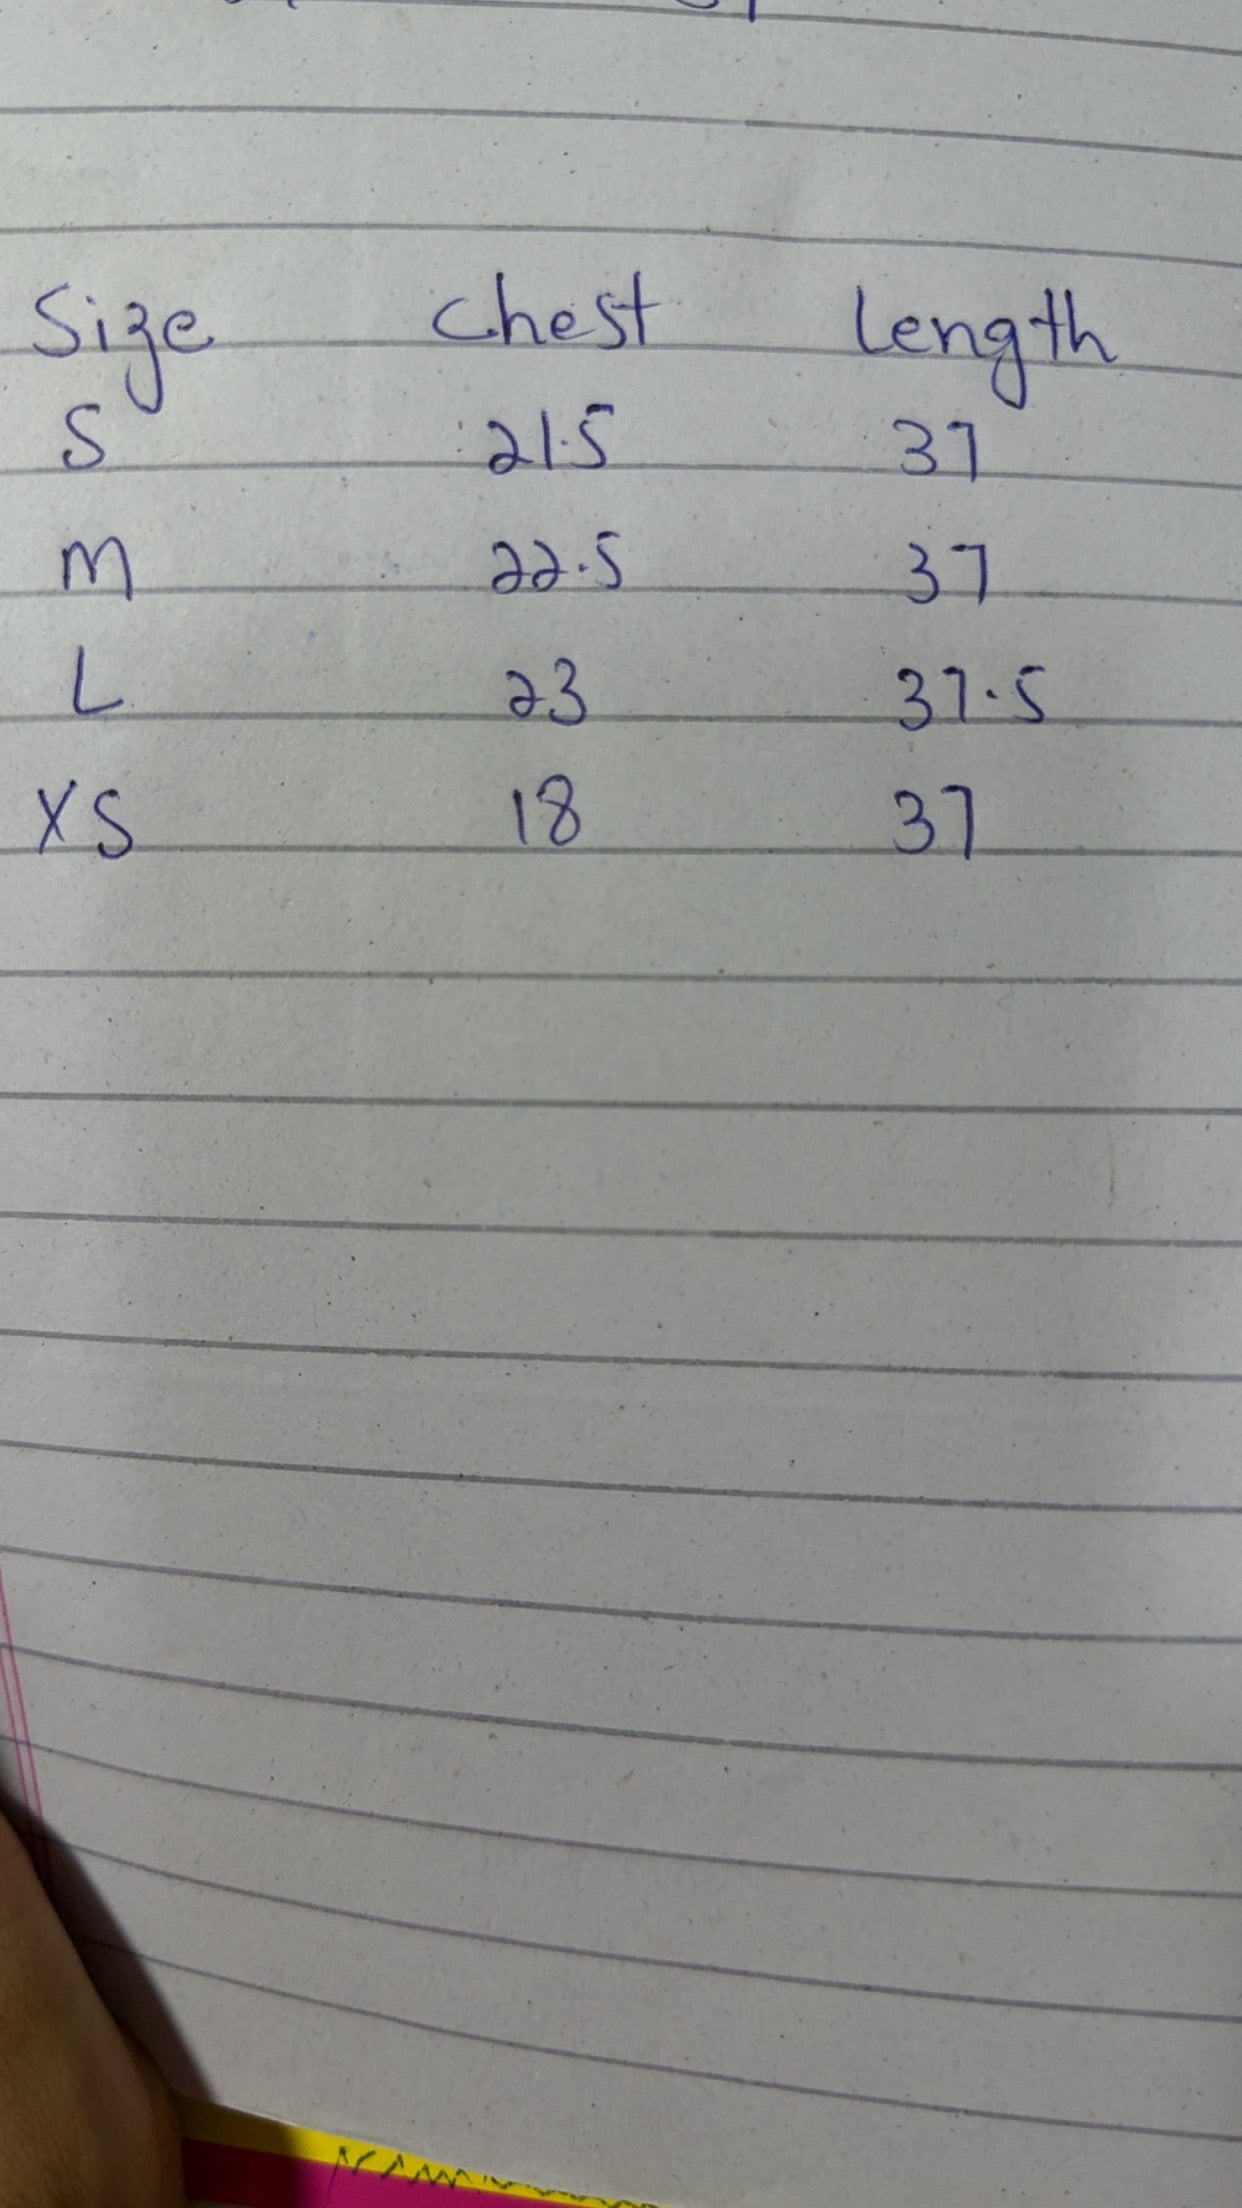 Size Chest Length
S 21.5 37
M 22.5 37
L 23 37.5
XS 18 37